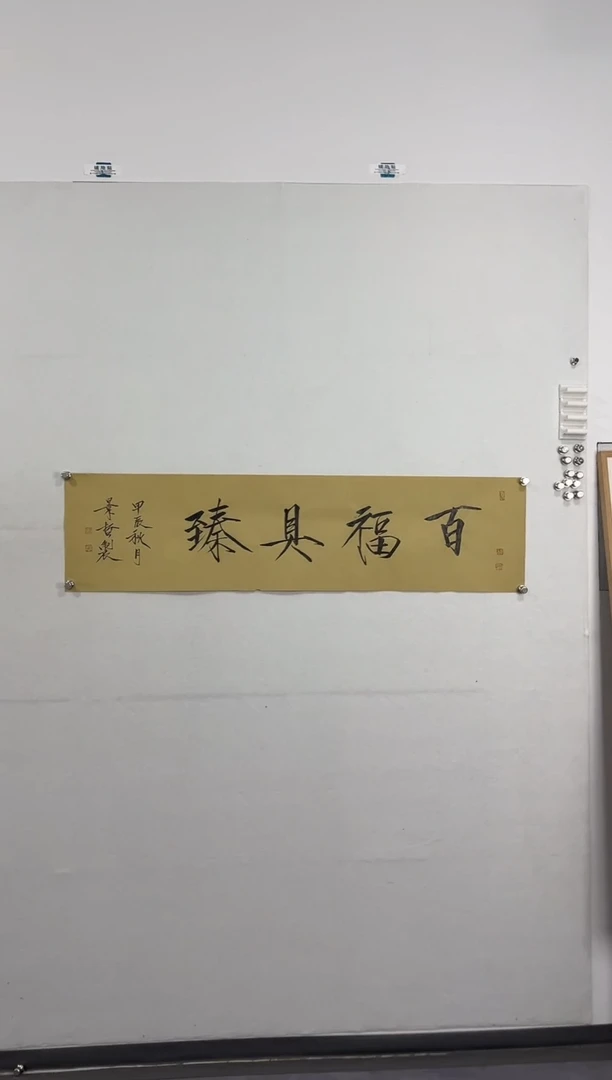 百福具臻
甲辰秋月
景哲製